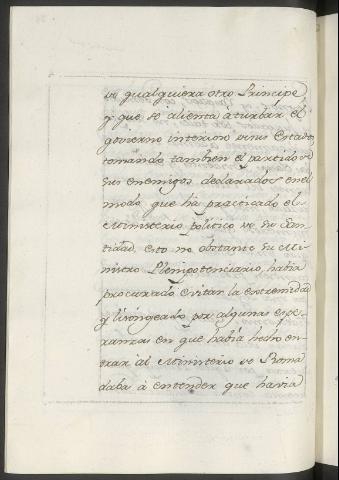 de qualquiera otro Principe
y que se alienta à turbàr el
governo interiòr de sus Estados,
tomando tambien el partido de
sus enemigos declarados en el
modo que ha practicado el
Ministerio politico de su San-
tidad, esto no obstante su Mi-
nistro Plenipotenciario, havia
procurado evitar la extremidad
y lisongeado por algunas espe-
ranzas en que havia hecho en-
trar al Ministerio de Roma
daba à entender que havia